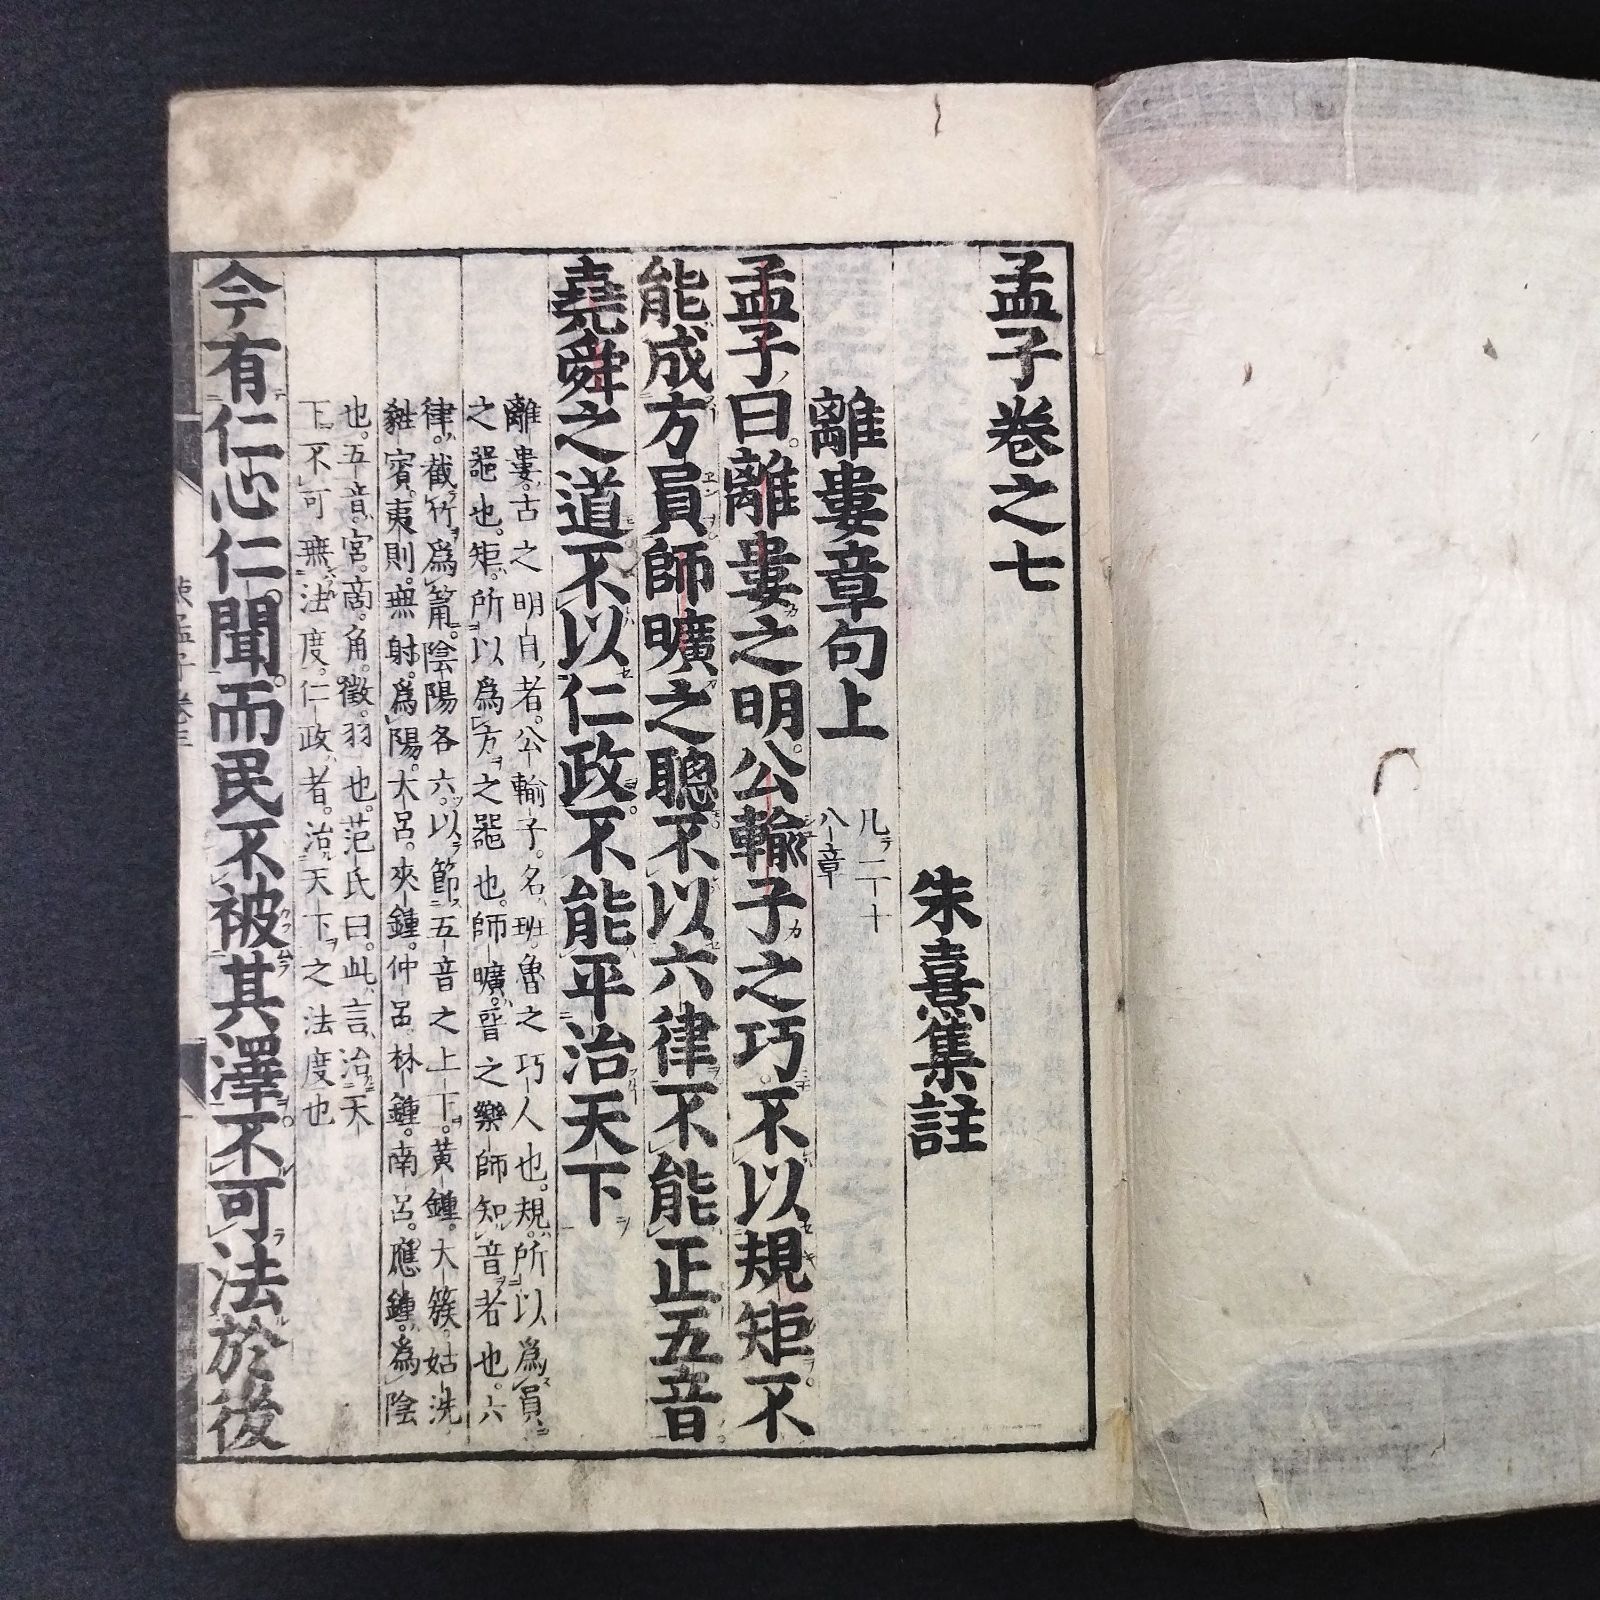 孟子卷之七
朱熹集註
離婁章句上
凡二十
八章
孟子曰離婁之明公輸子之巧不以規矩不
能成方員師曠之聰不以六律不能正五音
堯舜之道不以仁政不能平治天下
離婁。古之明目者。公輸子。名班。魯之巧人也。規。所以爲員
之器也。矩。所以爲方之器也。師曠。晉之樂師知音者也。六
律。截竹爲筩。陰陽各六。以節五音之上下。黃鍾。大簇。姑洗
蕤賓。夷則。無射。爲陽。大呂。夾鍾。仲呂。林鍾。南呂。應鍾。爲陰
也。五音。宮。商。角。徵。羽也。范氏曰。此言治天
下不可無法度。仁政者。治天下之法度也
今有仁心仁聞。而民不被其澤不可法於後